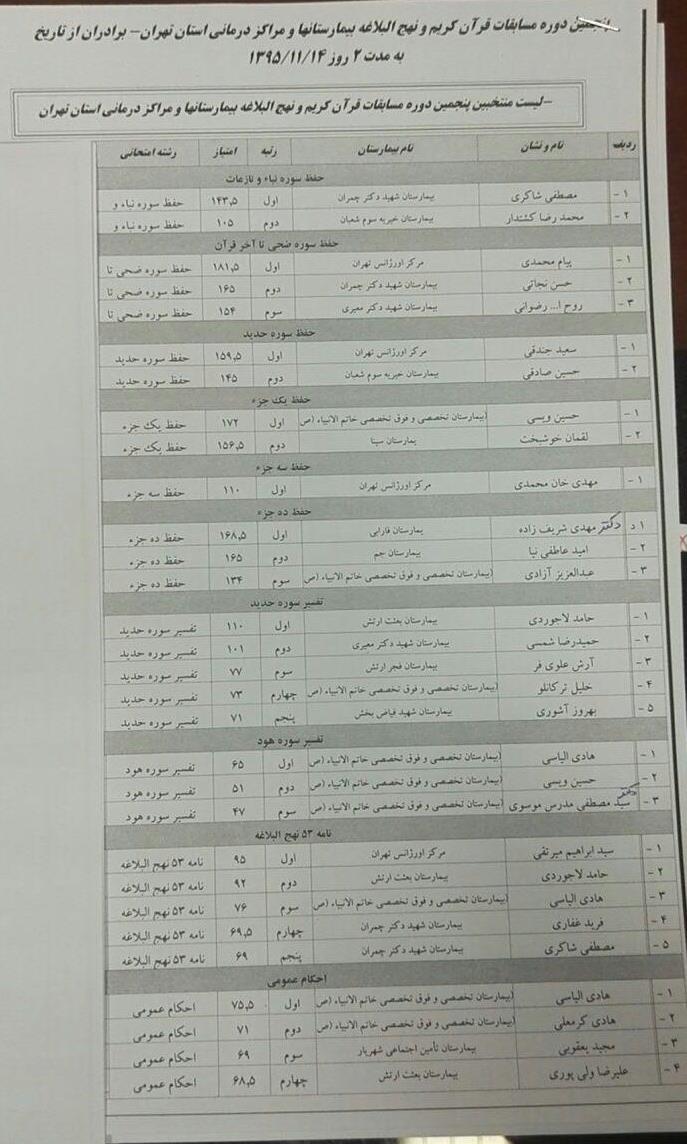 پنجمین دوره مسابقات قرآن کریم و نهج البلاغه بیمارستانها و مراکز درمانی استان تهران- برادران از تاریخ
۱۳۹۵/۱۱/۱۴ به مدت ۲ روز
-لیست منتخبین پنجمین دوره مسابقات قرآن کریم و نهج البلاغه بیمارستانها و مراکز درمانی استان تهران
ردیف نام و نشان نام بیمارستان رتبه امتیاز رشته امتحانی
حفظ سوره نباء و نازعات
۱- مصطفی شاکری بیمارستان شهید دکتر چمران اول ۱۴۳,۵ حفظ سوره نباء و
۲- محمد رضا کشتدار بیمارستان خیریه سوم شعبان دوم ۱۰۵ حفظ سوره نباء و
حفظ سوره ضحی تا آخر قرآن
۱- پیام محمدی مرکز اورژانس تهران اول ۱۸۱,۵ حفظ سوره ضحی تا
۲- حسن نجاتی بیمارستان شهید دکتر چمران دوم ۱۶۵ حفظ سوره ضحی تا
۳- روح ا... رضوانی بیمارستان شهید دکتر معیری سوم ۱۵۴ حفظ سوره ضحی تا
حفظ سوره حدید
۱- سعید جندقی مرکز اورژانس تهران اول ۱۵۹,۵ حفظ سوره حدید
۲- حسین صادقی بیمارستان خیریه سوم شعبان دوم ۱۴۵ حفظ سوره حدید
حفظ یک جزء
۱- حسین ویسی (بیمارستان تخصصی و فوق تخصصی خاتم الانبیاء (ص اول ۱۷۲ حفظ یک جزء
۲- لقمان خوشبخت یمارستان سینا دوم ۱۵۶,۵ حفظ یک جزء
حفظ سه جزء
۱- مهدی خان محمدی مرکز اورژانس تهران اول ۱۱۰ حفظ سه جزء
حفظ ده جزء
۱د دکتر مهدی شریف زاده یمارستان فارابی اول ۱۶۸,۵ حفظ ده جزء
۲- امید عاطفی نیا بیمارستان جم دوم ۱۶۵ حفظ ده جزء
۳- عبدالعزیز آزادی (بیمارستان تخصصی و فوق تخصصی خاتم الانبیاء (ص سوم ۱۳۴ حفظ ده جزء
تفسیر سوره حدید
۱- حامد لاجوردی بیمارستان بعثت ارتش اول ۱۱۰ تفسیر سوره حدید
۲- حمیدرضا شمسی بیمارستان شهید دکتر معیری دوم ۱۰۱ تفسیر سوره حدید
۳- آرش علوی فر بیمارستان فجر ارتش سوم ۷۷ تفسیر سوره حدید
۴- خلیل ترکانلو (بیمارستان تخصصی و فوق تخصصی خاتم الانبیاء (ص چهارم ۷۳ تفسیر سوره حدید
۵- بهروز آشوری بیمارستان شهید فیاض بخش پنجم ۷۱ تفسیر سوره حدید
تفسیر سوره هود
۱- هادی الیاسی (بیمارستان تخصصی و فوق تخصصی خاتم الانبیاء (ص اول ۶۵ تفسیر سوره هود
۲- حسین ویسی (بیمارستان تخصصی و فوق تخصصی خاتم الانبیاء (ص دوم ۵۱ تفسیر سوره هود
۳- دکتر سید مصطفی مدرس موسوی (بیمارستان تخصصی و فوق تخصصی خاتم الانبیاء (ص سوم ۴۷ تفسیر سوره هود
نامه ۵۳ نهج البلاغه
۱- سید ابراهیم میرتقی مرکز اورژانس تهران اول ۹۵ نامه ۵۳ نهج البلاغه
۲- حامد لاجوردی بیمارستان بعثت ارتش دوم ۹۲ نامه ۵۳ نهج البلاغه
۳- هادی الیاسی (بیمارستان تخصصی و فوق تخصصی خاتم الانبیاء (ص سوم ۷۶ نامه ۵۳ نهج البلاغه
۴- فرید غفاری بیمارستان شهید دکتر چمران چهارم ۶۹,۵ نامه ۵۳ نهج البلاغه
۵- مصطفی شاکری بیمارستان شهید دکتر چمران پنجم ۶۹ نامه ۵۳ نهج البلاغه
احکام عمومی
۱- هادی الیاسی (بیمارستان تخصصی و فوق تخصصی خاتم الانبیاء (ص اول ۷۵,۵ احکام عمومی
۲- هادی کرمعلی (بیمارستان تخصصی و فوق تخصصی خاتم الانبیاء (ص دوم ۷۱ احکام عمومی
۳- مجید یعقوبی بیمارستان تأمین اجتماعی شهریار سوم ۶۹ احکام عمومی
۴- علیرضا ولی پوری بیمارستان بعثت ارتش چهارم ۶۸,۵ احکام عمومی